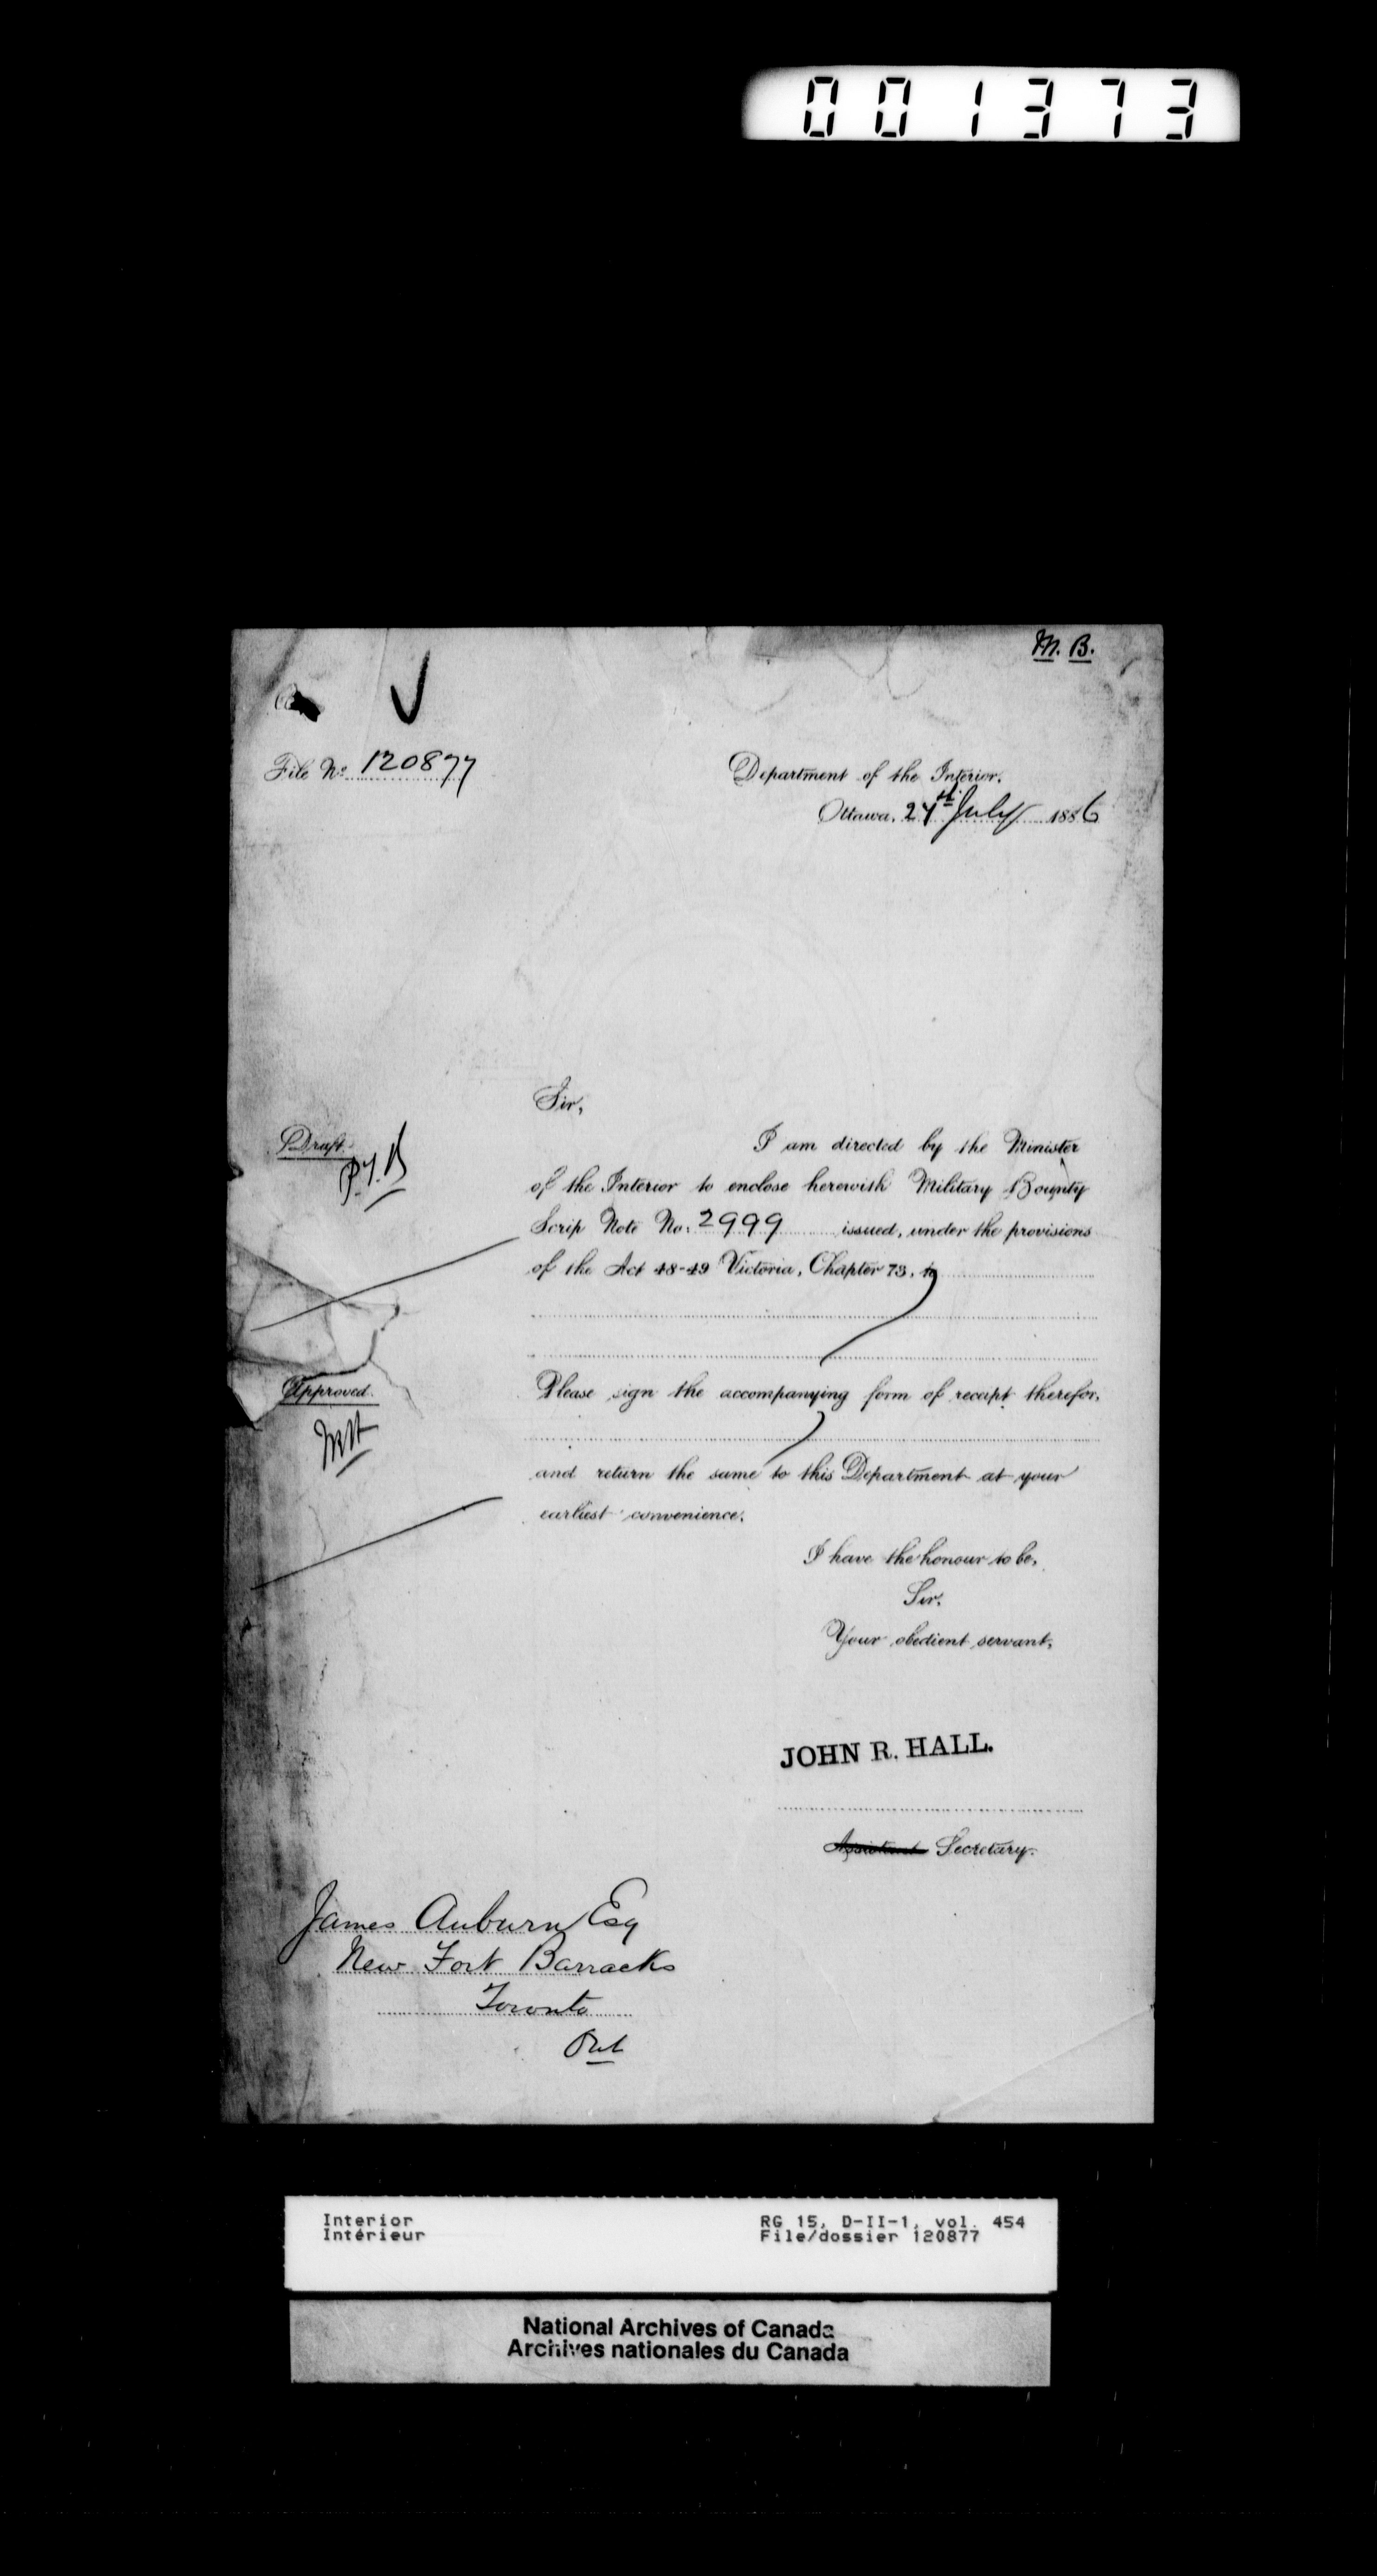 001373
M. B.
File No. 120877
Department of the Interior.
Ottawa, 27th July 1886
Sir,
Draft.
I am directed by the Minister
of the Interior to enclose herewith Military Bounty
Scrip Note No: 2999 issued, under the provisions
of the Act 48-49 Victoria, Chapter 73, to
Approved.
Please sign the accompanying form of receipt therefor,
and return the same to this Department at your
earliest convenience.
I have the honour to be,
Sir,
Your obedient servant,
JOHN R. HALL.
Assistant Secretary.
James Auburn Esq
New Fort Barracks
Toronto
Ont
Interior
Intérieur
RG 15, D-II-1, vol. 454
File/dossier 120877
National Archives of Canada
Archives nationales du Canada